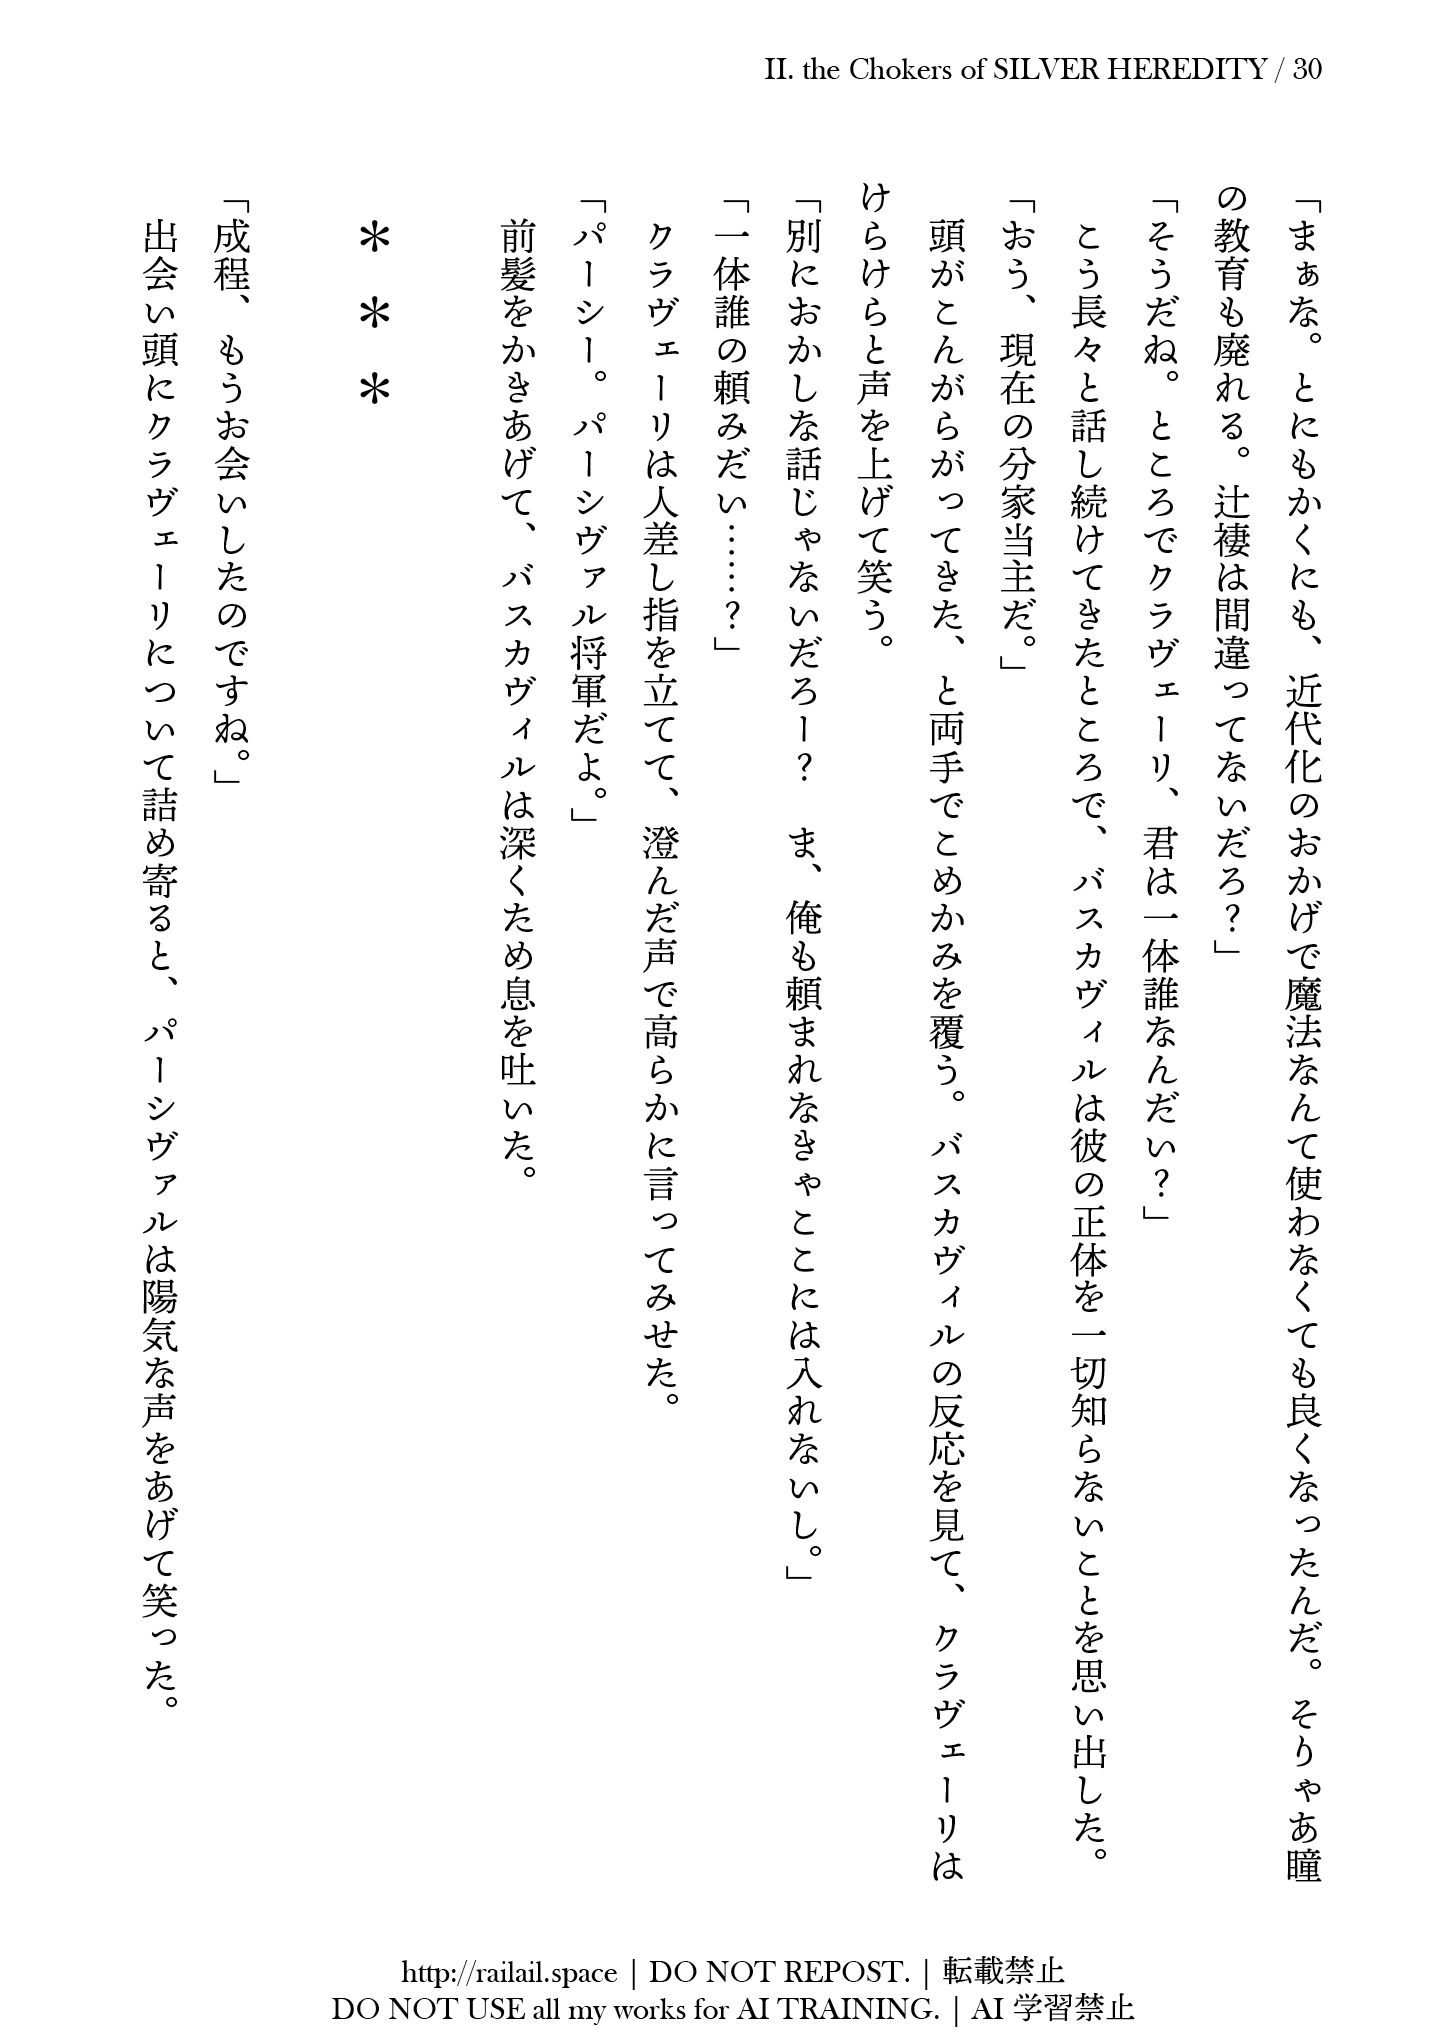 II. the Chokers of SILVER HEREDITY / 30
「まぁな。とにもかくにも、近代化のおかげで魔法なんて使わなくても良くなったんだ。そりゃあ瞳
の教育も廃れる。辻褄は間違ってないだろ？」
「そうだね。ところでクラヴェーリ、君は一体誰なんだい？」
　こう長々と話し続けてきたところで、バスカヴィルは彼の正体を一切知らないことを思い出した。
「おう、現在の分家当主だ。」
　頭がこんがらがってきた、と両手でこめかみを覆う。バスカヴィルの反応を見て、クラヴェーリは
けらけらと声を上げて笑う。
「別におかしな話じゃないだろー？　ま、俺も頼まれなきゃここには入れないし。」
「一体誰の頼みだい……？」
　クラヴェーリは人差し指を立てて、澄んだ声で高らかに言ってみせた。
「パーシー。パーシヴァル将軍だよ。」
　前髪をかきあげて、バスカヴィルは深くため息を吐いた。
＊　＊　＊
「成程、もうお会いしたのですね。」
　出会い頭にクラヴェーリについて詰め寄ると、パーシヴァルは陽気な声をあげて笑った。
http://railail.space | DO NOT REPOST. | 転載禁止
DO NOT USE all my works for AI TRAINING. | AI 学習禁止